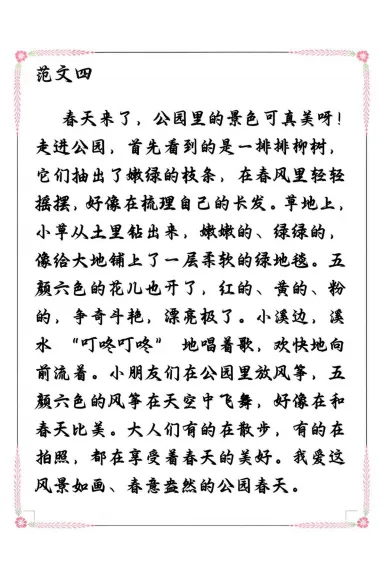 范文四
春天来了，公园里的景色可真美呀！
走进公园，首先看到的是一排排柳树，
它们抽出了嫩绿的枝条，在春风里轻轻
摇摆，好像在梳理自己的长发。草地上，
小草从土里钻出来，嫩嫩的、绿绿的，
像给大地铺上了一层柔软的绿地毯。五
颜六色的花儿也开了，红的、黄的、粉
的，争奇斗艳，漂亮极了。小溪边，溪
水“叮咚叮咚”地唱着歌，欢快地向
前流着。小朋友们在公园里放风筝，五
颜六色的风筝在天空中飞舞，好像在和
春天比美。大人们有的在散步，有的在
拍照，都在享受着春天的美好。我爱这
风景如画、春意盎然的公园春天。